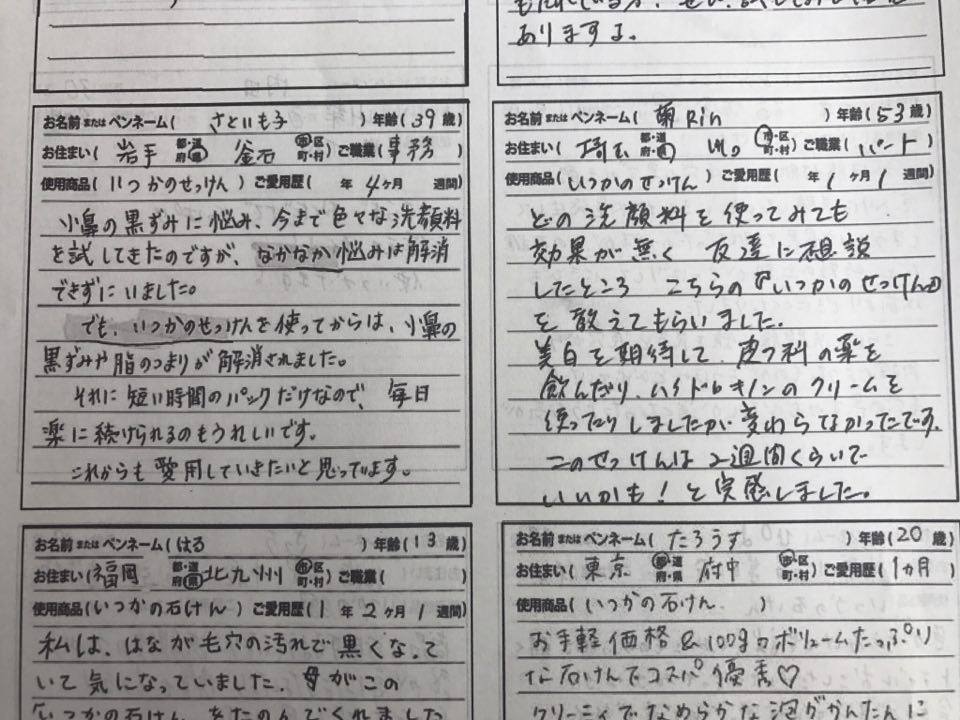 ありますよ。
お名前またはペンネーム( さといも子 )年齢( 39 歳)
お住まい( 岩手 都・道府・県 釜石 市・区町・村 )ご職業( 事務 )
使用商品( いつかのせっけん )ご愛用歴( 年 4 ヶ月 週間)
小鼻の黒ずみに悩み、今まで色々な洗顔料
を試してきたのですが、なかなか悩みは解消
できずにいました。
でも、いつかのせっけんを使ってからは、小鼻の
黒ずみや脂のつまりが解消されました。
それに短い時間のパックだけなので、毎日
楽に続けられるのもうれしいです。
これからも愛用していきたいと思っています。
お名前またはペンネーム( 蘭Rin )年齢( 53 歳)
お住まい( 埼玉 都・道府・県 市・区町・村 )ご職業( パート )
使用商品( いつかのせっけん )ご愛用歴( 年 1 ヶ月 1 週間)
どの洗顔料を使ってみても
効果が無く 友達に相談
したところ こちらの『いつかのせっけん』
を教えてもらいました。
美白を期待して、皮フ科の薬を
飲んだり、ハイドロキノンのクリームを
使ったりしましたが変わらなかったです。
このせっけんは2週間くらいで
いいかも！と実感しました。
お名前またはペンネーム( はる )年齢( 13 歳)
お住まい( 福岡 都・道府・県 北九州 市・区町・村 )ご職業( )
使用商品( いつかの石けん )ご愛用歴( 1 年 2 ヶ月 1 週間)
私は、はなが毛穴の汚れで黒くなって
いて気になっていました。母がこの
いつかの石けんをたのんでくれました
お名前またはペンネーム( たろうす )年齢( 20 歳)
お住まい( 東京 都・道府・県 府中 市・区町・村 )ご愛用歴( 1ヵ月 )
使用商品( いつかの石けん )
お手軽価格&100gのボリュームたっぷり
な石けんでコスパ優秀♡
クリーミィでなめらかな泡がかんたんに